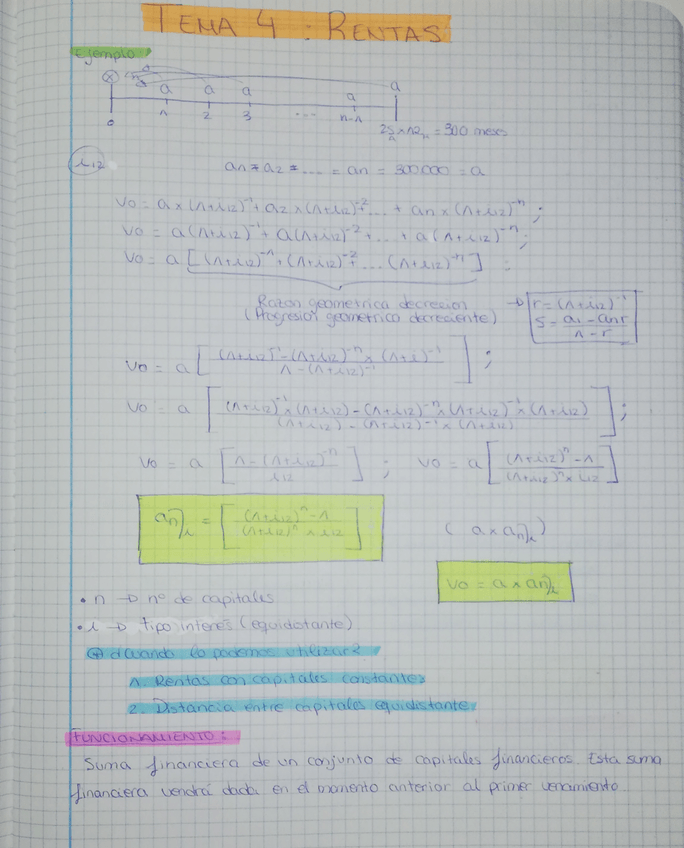 TEMA 4 : RENTAS
Ejemplo
a a a a a
0 1 2 3 ... n-1 25/1 x 12/1 = 300 meses
i12 a1 = a2 = .... = an = 300000 = a
Vo = a x (1+i12)^-1 + a2 x (1+i12)^-2 + ... + an x (1+i12)^-n ;
Vo = a(1+i12)^-1 + a(1+i12)^-2 + ... + a(1+i12)^-n ;
Vo = a [(1+i12)^-1 + (1+i12)^-2 + ... (1+i12)^-n] ;
Razon geometrica decrecion
(Progresion geometrica decreciente)
→ r = (1+i12)^-1
S = (a1 - an r) / (1 - r)
Vo = a [ ((1+i12)^-1 - (1+i12)^-n x (1+i)^-1) / (1 - (1+i12)^-1) ] ;
Vo = a [ ((1+i12)^-1 x (1+i12) - (1+i12)^-n x (1+i12)^-1 x (1+i12)) / ((1+i12) - (1+i12)^-1 x (1+i12)) ] ;
Vo = a [ (1 - (1+i12)^-n) / i12 ] ; Vo = a [ ((1+i12)^n - 1) / ((1+i12)^n x i12) ]
an⌉i = [ ((1+i12)^n - 1) / ((1+i12)^n x i12) ] (a x an⌉i)
Vo = a x an⌉i
• n → nº de capitales
• i → tipo interes (equidistante)
⊕ ¿Cuando lo podemos utilizar?
1. Rentas con capitales constantes
2. Distancia entre capitales equidistante
FUNCIONAMIENTO:
Suma financiera de un conjunto de capitales financieros. Esta suma
financiera vendrá dada en el momento anterior al primer vencimiento.